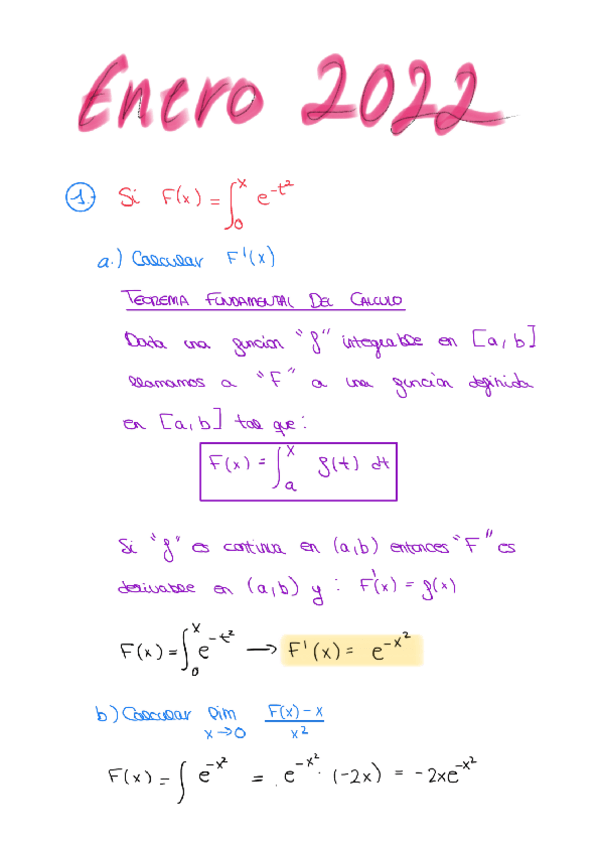 Enero 2022
1. Si F(x) = ∫₀ˣ e^{-t²}
a.) Calcular F'(x)
TEOREMA FUNDAMENTAL DEL CALCULO
Dada una función "f" integrable en [a,b]
llamamos a "F" a una función definida
en [a,b] tal que:
F(x) = ∫ₐˣ f(t) dt
Si "f" es continua en (a,b) entonces "F" es
derivable en (a,b) y: F'(x) = f(x)
F(x) = ∫₀ˣ e^{-t²} → F'(x) = e^{-x²}
b) Calcular lim x→0 (F(x) - x)/x²
F(x) = ∫ e^{-x²} = e^{-x²} · (-2x) = -2xe^{-x²}